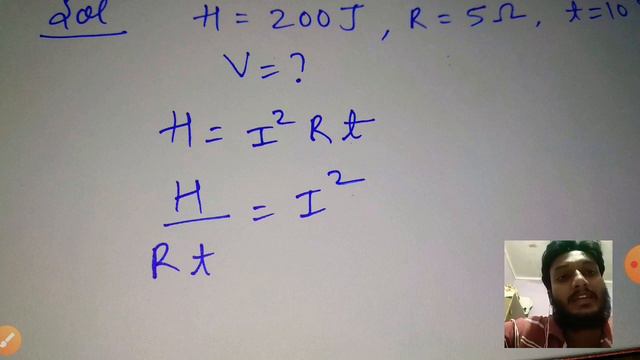 Sol H = 200J, R = 5Ω, t=10
V = ?
H = I² R t
H / R t = I²